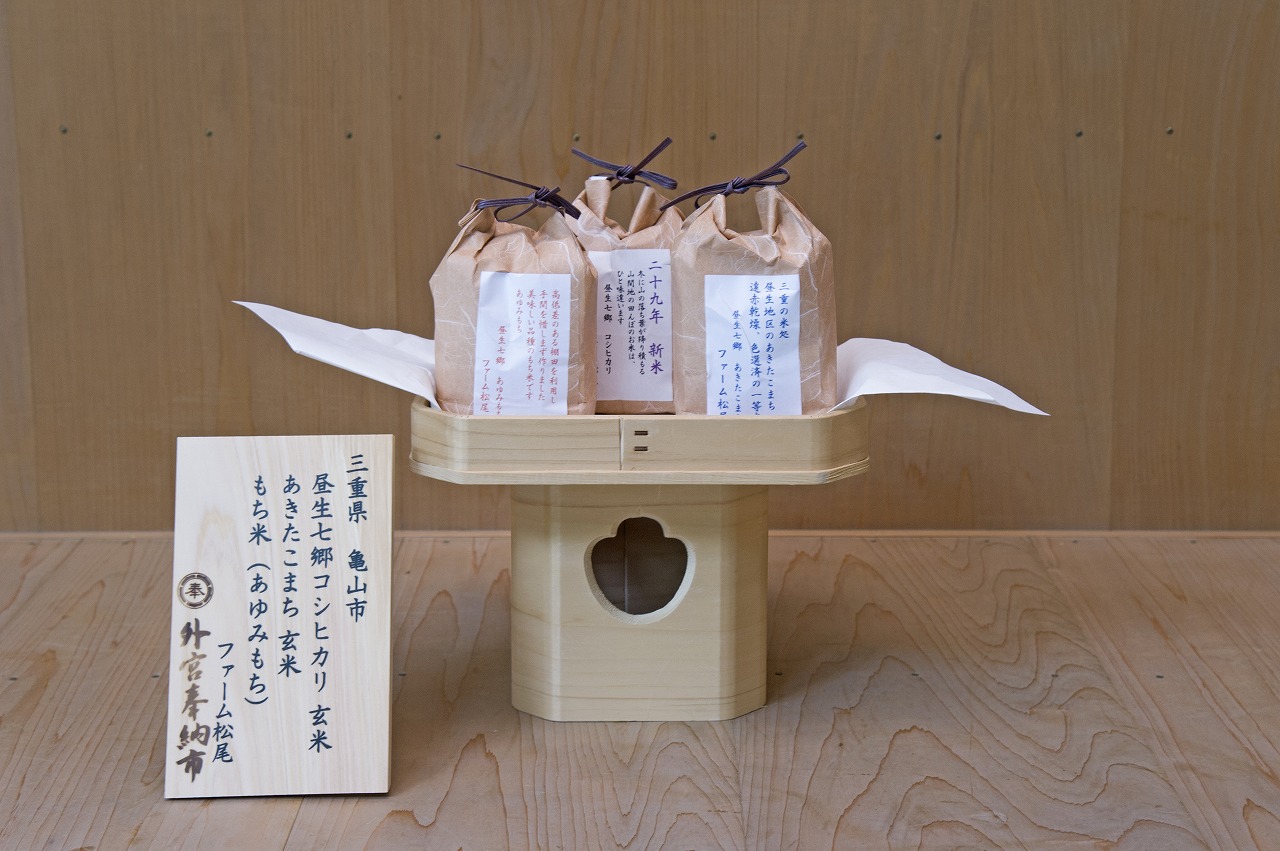 三重県 亀山市
昼生七郷コシヒカリ 玄米
あきたこまち 玄米
もち米（あゆみもち）
ファーム松尾
奉
外宮奉納市
高低差のある棚田を利用し
手間を惜しまず作りました
美味しい品種のもち米です
あゆみもち
昼生七郷 あゆみも
ファーム松尾
二十九年 新米
冬に山の落ち葉が降り積もる
山間地の田んぼのお米は、
ひと味違います
昼生七郷 コシヒカリ
三重の米処
昼生地区のあきたこまち
遠赤乾燥、色選済の一等
昼生七郷 あきたこま
ファーム松尾